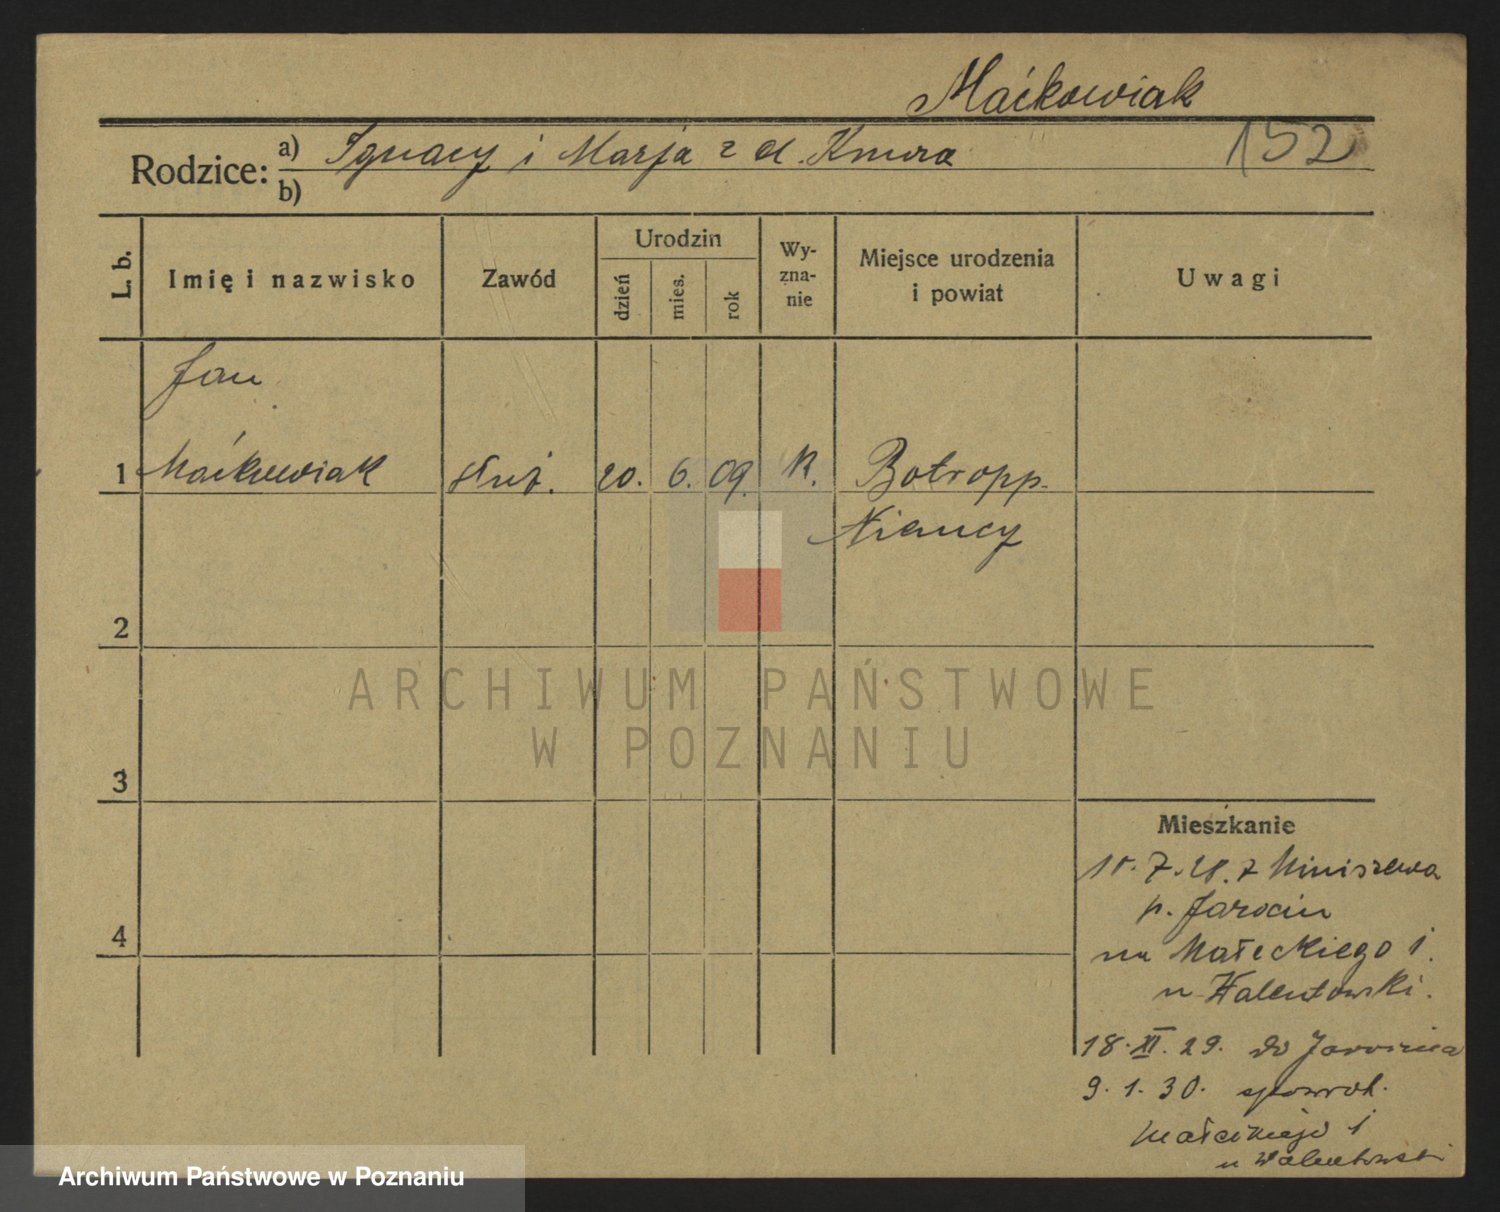 Maćkowiak
Rodzice: a) Ignacy i Marja z d. Kmera 152
b)
L. b.
Imię i nazwisko
Zawód
Urodzin
dzień
mies.
rok
Wy-
zna-
nie
Miejsce urodzenia
i powiat
Uwagi
Jan
1 Maćkowiak służ. 20. 6. 09. K. Botropp.
Niemcy
2
ARCHIWUM PAŃSTWOWE
W POZNANIU
3
Mieszkanie
10. 7. 28. z Miniszewa
p. Jarocin
na Małeckiego 1.
u Walentowski.
4
18. XI. 29. do Jarocina
9. 1. 30. spowrot.
Małeckiego 1
u Walentowski
Archiwum Państwowe w Poznaniu